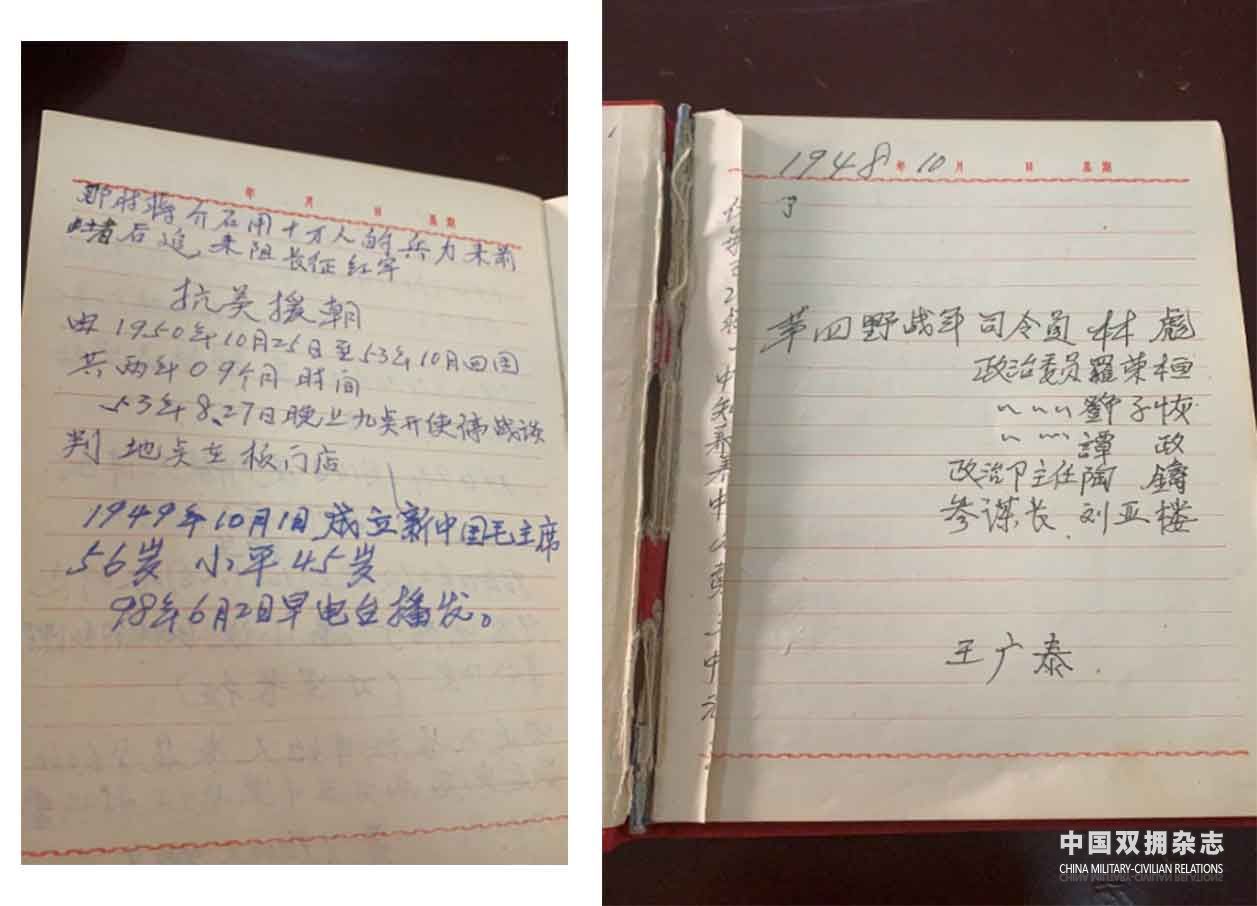 年 月 日 星期
那时蒋介石用十万人的兵力来前
堵后追,来阻长征红军
抗美援朝
由1950年10月25日至53年10月回国
共两年09个月时间
53年8.27日晚上九点开使停战谈
判 地点在板门店
1949年10月1日成立新中国毛主席
56岁 小平45岁
98年6月2日早电台播发。
1948年10月 日 星期
了
第四野战军司令员 林彪
政治委员羅荣桓
〃〃〃 鄧子恢
〃〃〃 譚 政
政治卩主任陶 鑄
参谋长 刘亚楼
王广泰
中国双拥杂志
CHINA MILITARY-CIVILIAN RELATIONS